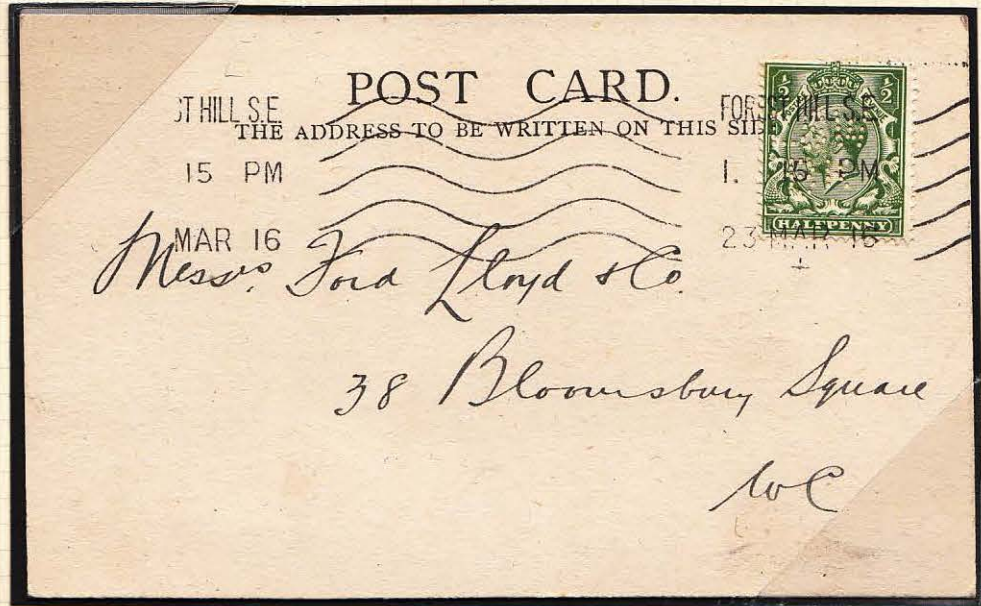 POST CARD.
THE ADDRESS TO BE WRITTEN ON THIS SIDE
ST HILL S.E.
15 PM
MAR 16
FOREST HILL S.E.
1. 15 PM
23 MAR 16
+
½ ½
HALFPENNY
Messrs. Ford Lloyd & Co.
38 Bloomsbury Square
WC